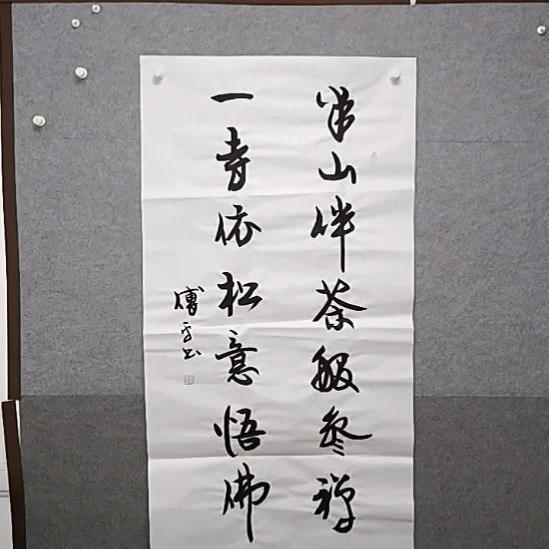 半山伴茶般参禅
一寺依松意悟佛